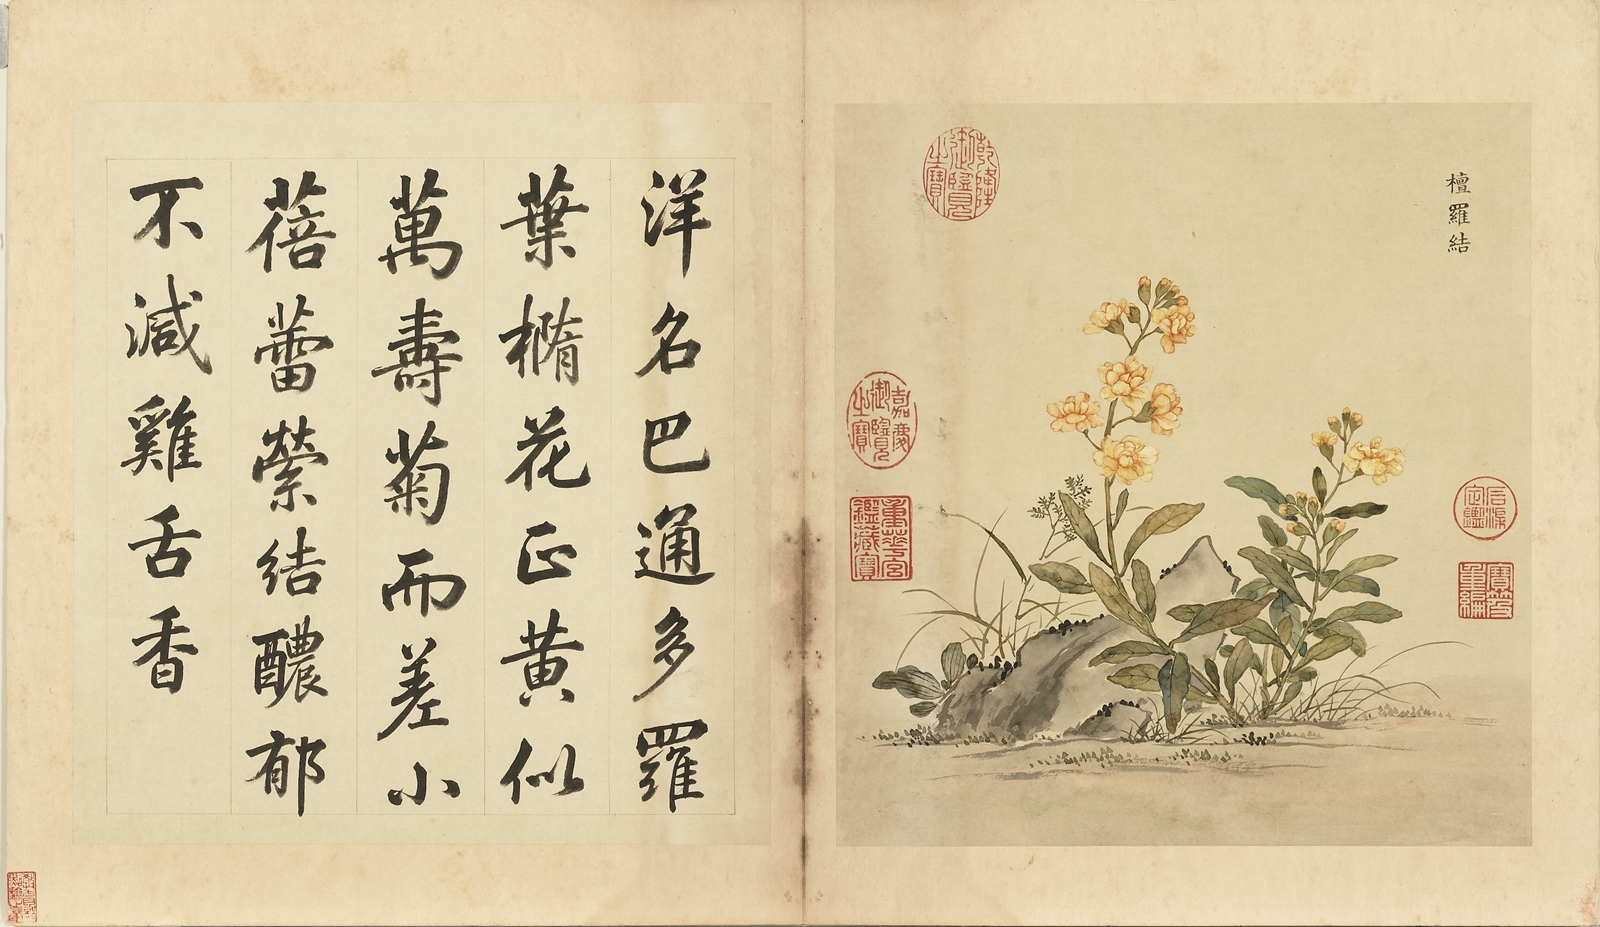 檀羅結
乾隆御覽之寶
嘉慶御覽之寶
重華宮鑑藏寶
石渠定鑑
寶笈重編
洋名巴通多羅
葉橢花正黃似
萬壽菊而差小
蓓蕾縈結醲郁
不減雞舌香